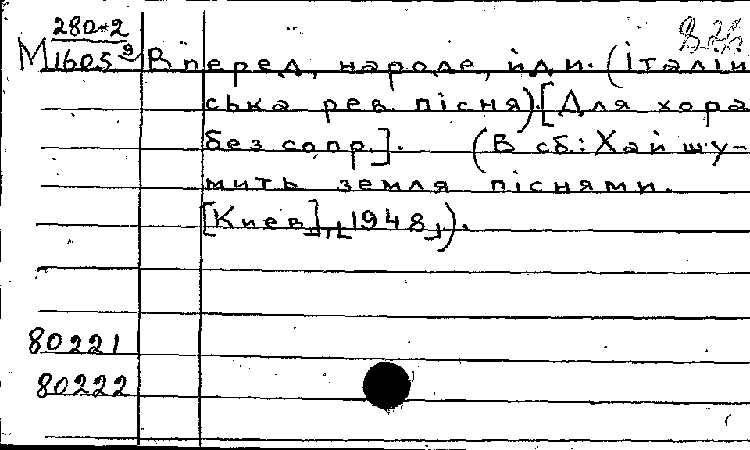 280-2
М1605⁹ Вперед, народе, йди. (Італій
ська рев. пісня).[Для хора
без сопр.]. (В сб.: Хай шу-
мить земля піснями.
[Киев], [1948]).
80221
80222